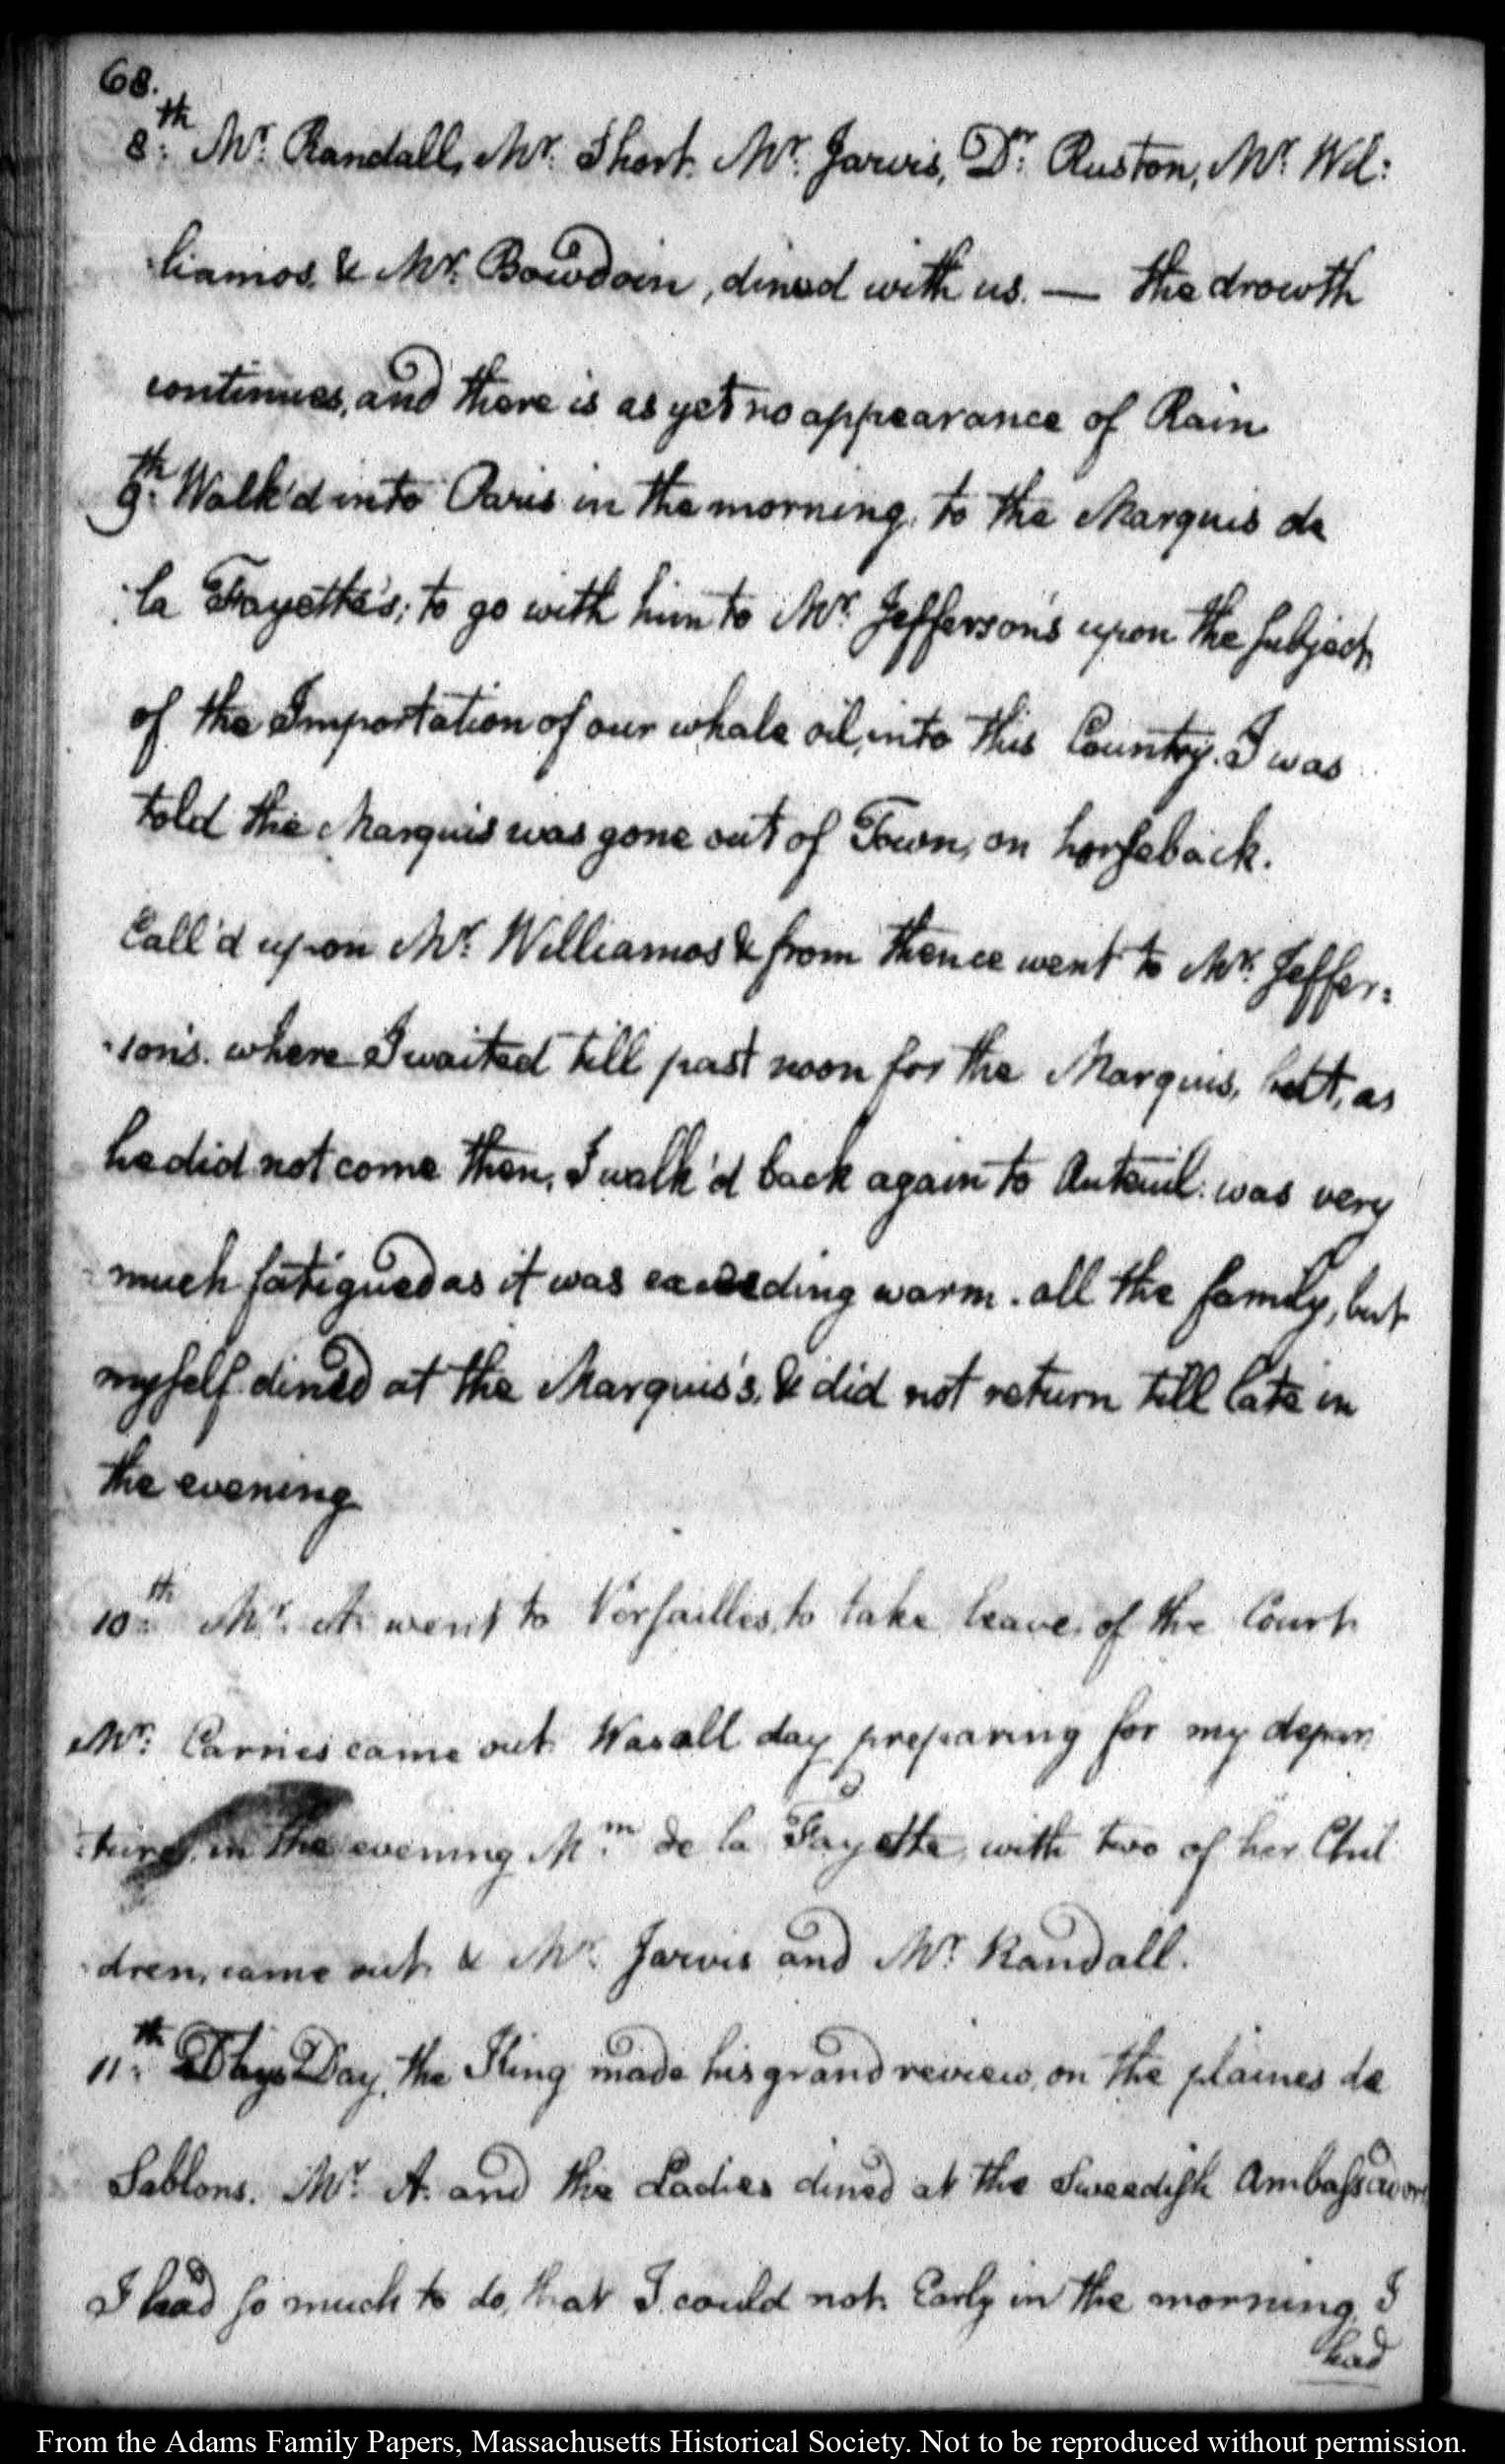 68.
8.th Mr. Randall, Mr. Short. Mr. Jarvis, Dr. Ruston, Mr. Wil:
:liamos, & Mr. Bowdoin, dined with us. — the drowth
continues, and there is as yet no appearance of Rain
9.th Walk'd into Paris in the morning, to the Marquis de
:la Fayette's; to go with him to Mr. Jefferson's upon the subject,
of the Importation of our whale oil, into this Country. I was
told the Marquis was gone out of Town, on horseback.
Call'd upon Mr. Williamos & from thence went to Mr. Jeffer:
:son's. where I waited till past noon for the Marquis, but, as
he did not come then, I walk'd back again to Auteuil: was very
much fatigued as it was exceeding warm. all the family, but
myself dined at the Marquis's, & did not return till late in
the evening
10.th Mr. A. went to Versailles, to take leave, of the Court.
Mr. Carnes came out. Was all day preparing for my depar
:ture, in the evening Mm. de la Fayette, with two of her Chil
:dren, came out. & Mr. Jarvis and Mr. Randall.
11.th This Day, the King made his grand review, on the plaines de
Sablons. Mr. A. and the Ladies dined at the Sweedish Ambassadors
I had so much to do, that I could not. Early in the morning, I
had
From the Adams Family Papers, Massachusetts Historical Society. Not to be reproduced without permission.